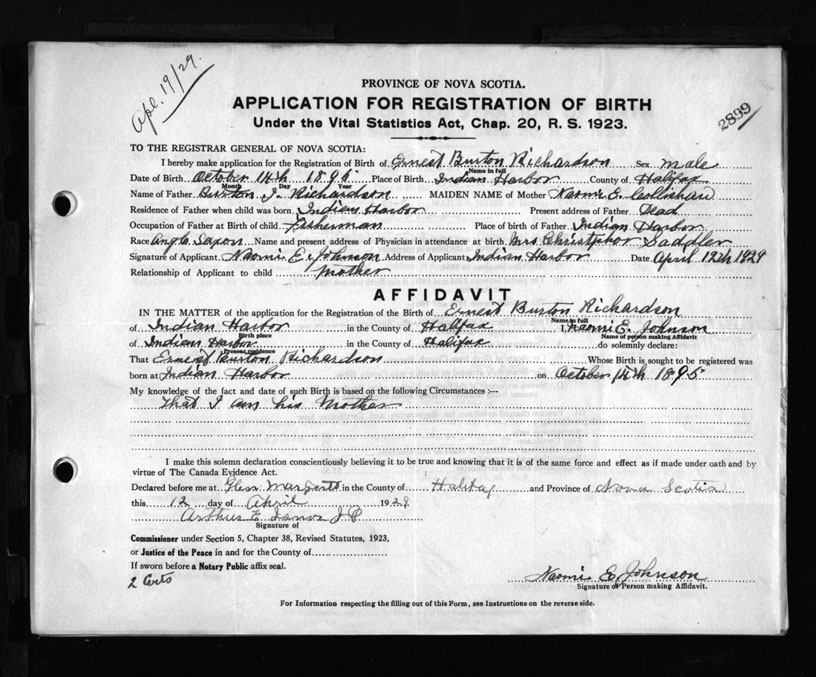 Apl. 19/29.
2899
PROVINCE OF NOVA SCOTIA.
APPLICATION FOR REGISTRATION OF BIRTH
Under the Vital Statistics Act, Chap. 20, R. S. 1923.
TO THE REGISTRAR GENERAL OF NOVA SCOTIA:
I hereby make application for the Registration of Birth of Ernest Burton Richardson Sex male
Name in full
Date of Birth October 14th 1895 Place of Birth Indian Harbor County of Halifax
Month Day Year
Name of Father Burton J. Richardson MAIDEN NAME of Mother Naomi E.
Residence of Father when child was born Indian Harbor Present address of Father Dead
Occupation of Father at Birth of child Fisherman Place of birth of Father Indian Harbor
Race Anglo Saxon Name and present address of Physician in attendance at birth Mrs. Christopher Saddler
Signature of Applicant Naomi E. Johnson Address of Applicant Indian Harbor Date April 12th 1929
Relationship of Applicant to child Mother
AFFIDAVIT
IN THE MATTER of the application for the Registration of the Birth of Ernest Burton Richardson
Name in full
of Indian Harbor in the County of Halifax I, Naomi E. Johnson
Birth place Name of person making Affidavit
of Indian Harbor in the County of Halifax do solemnly declare:
Present residence
That Ernest Burton Richardson Whose Birth is sought to be registered was
born at Indian Harbor on October 14th 1895
My knowledge of the fact and date of such Birth is based on the following Circumstances :—
that I am his Mother
I make this solemn declaration conscientiously believing it to be true and knowing that it is of the same force and effect as if made under oath and by
virtue of The Canada Evidence Act.
Declared before me at Glen Margerts in the County of Halifax and Province of Nova Scotia
this 12 day of April 1929
Arthur E J P
Signature of
Commissioner under Section 5, Chapter 38, Revised Statutes, 1923,
or Justice of the Peace in and for the County of
If sworn before a Notary Public affix seal.
2 Certs
Naomi E. Johnson
Signature of Person making Affidavit.
For Information respecting the filling out of this Form, see Instructions on the reverse side.